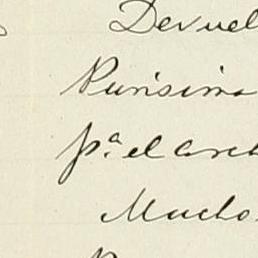 Devuel
Purisima
pª. el arch
Mucho